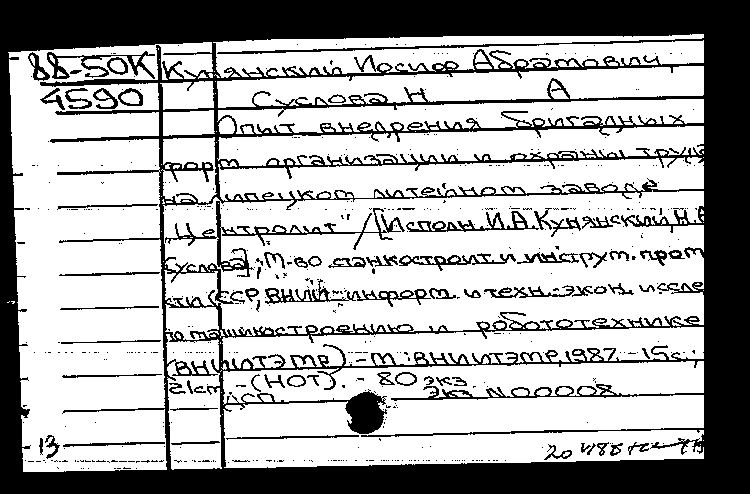 88-50К Кунянский, Иосиф Абрамович,
4590 Суслова, Н А
Опыт внедрения бригадных
форм организации и охраны труда
на липецком литейном заводе
„Центролит" / [Исполн. И.А. Кунянский, Н.А
Суслова]; М-во станкостроит. и инструм. пром
сти СССР, ВНИИ информ. и техн.-экон. иссле
по машиностроению и робототехнике
(ВНИИТЭМР). - М.: ВНИИТЭМР, 1987. - 15с.;
21см. - (НОТ). - 80 экз.
ДСП. Экз. N 00008.
13
20